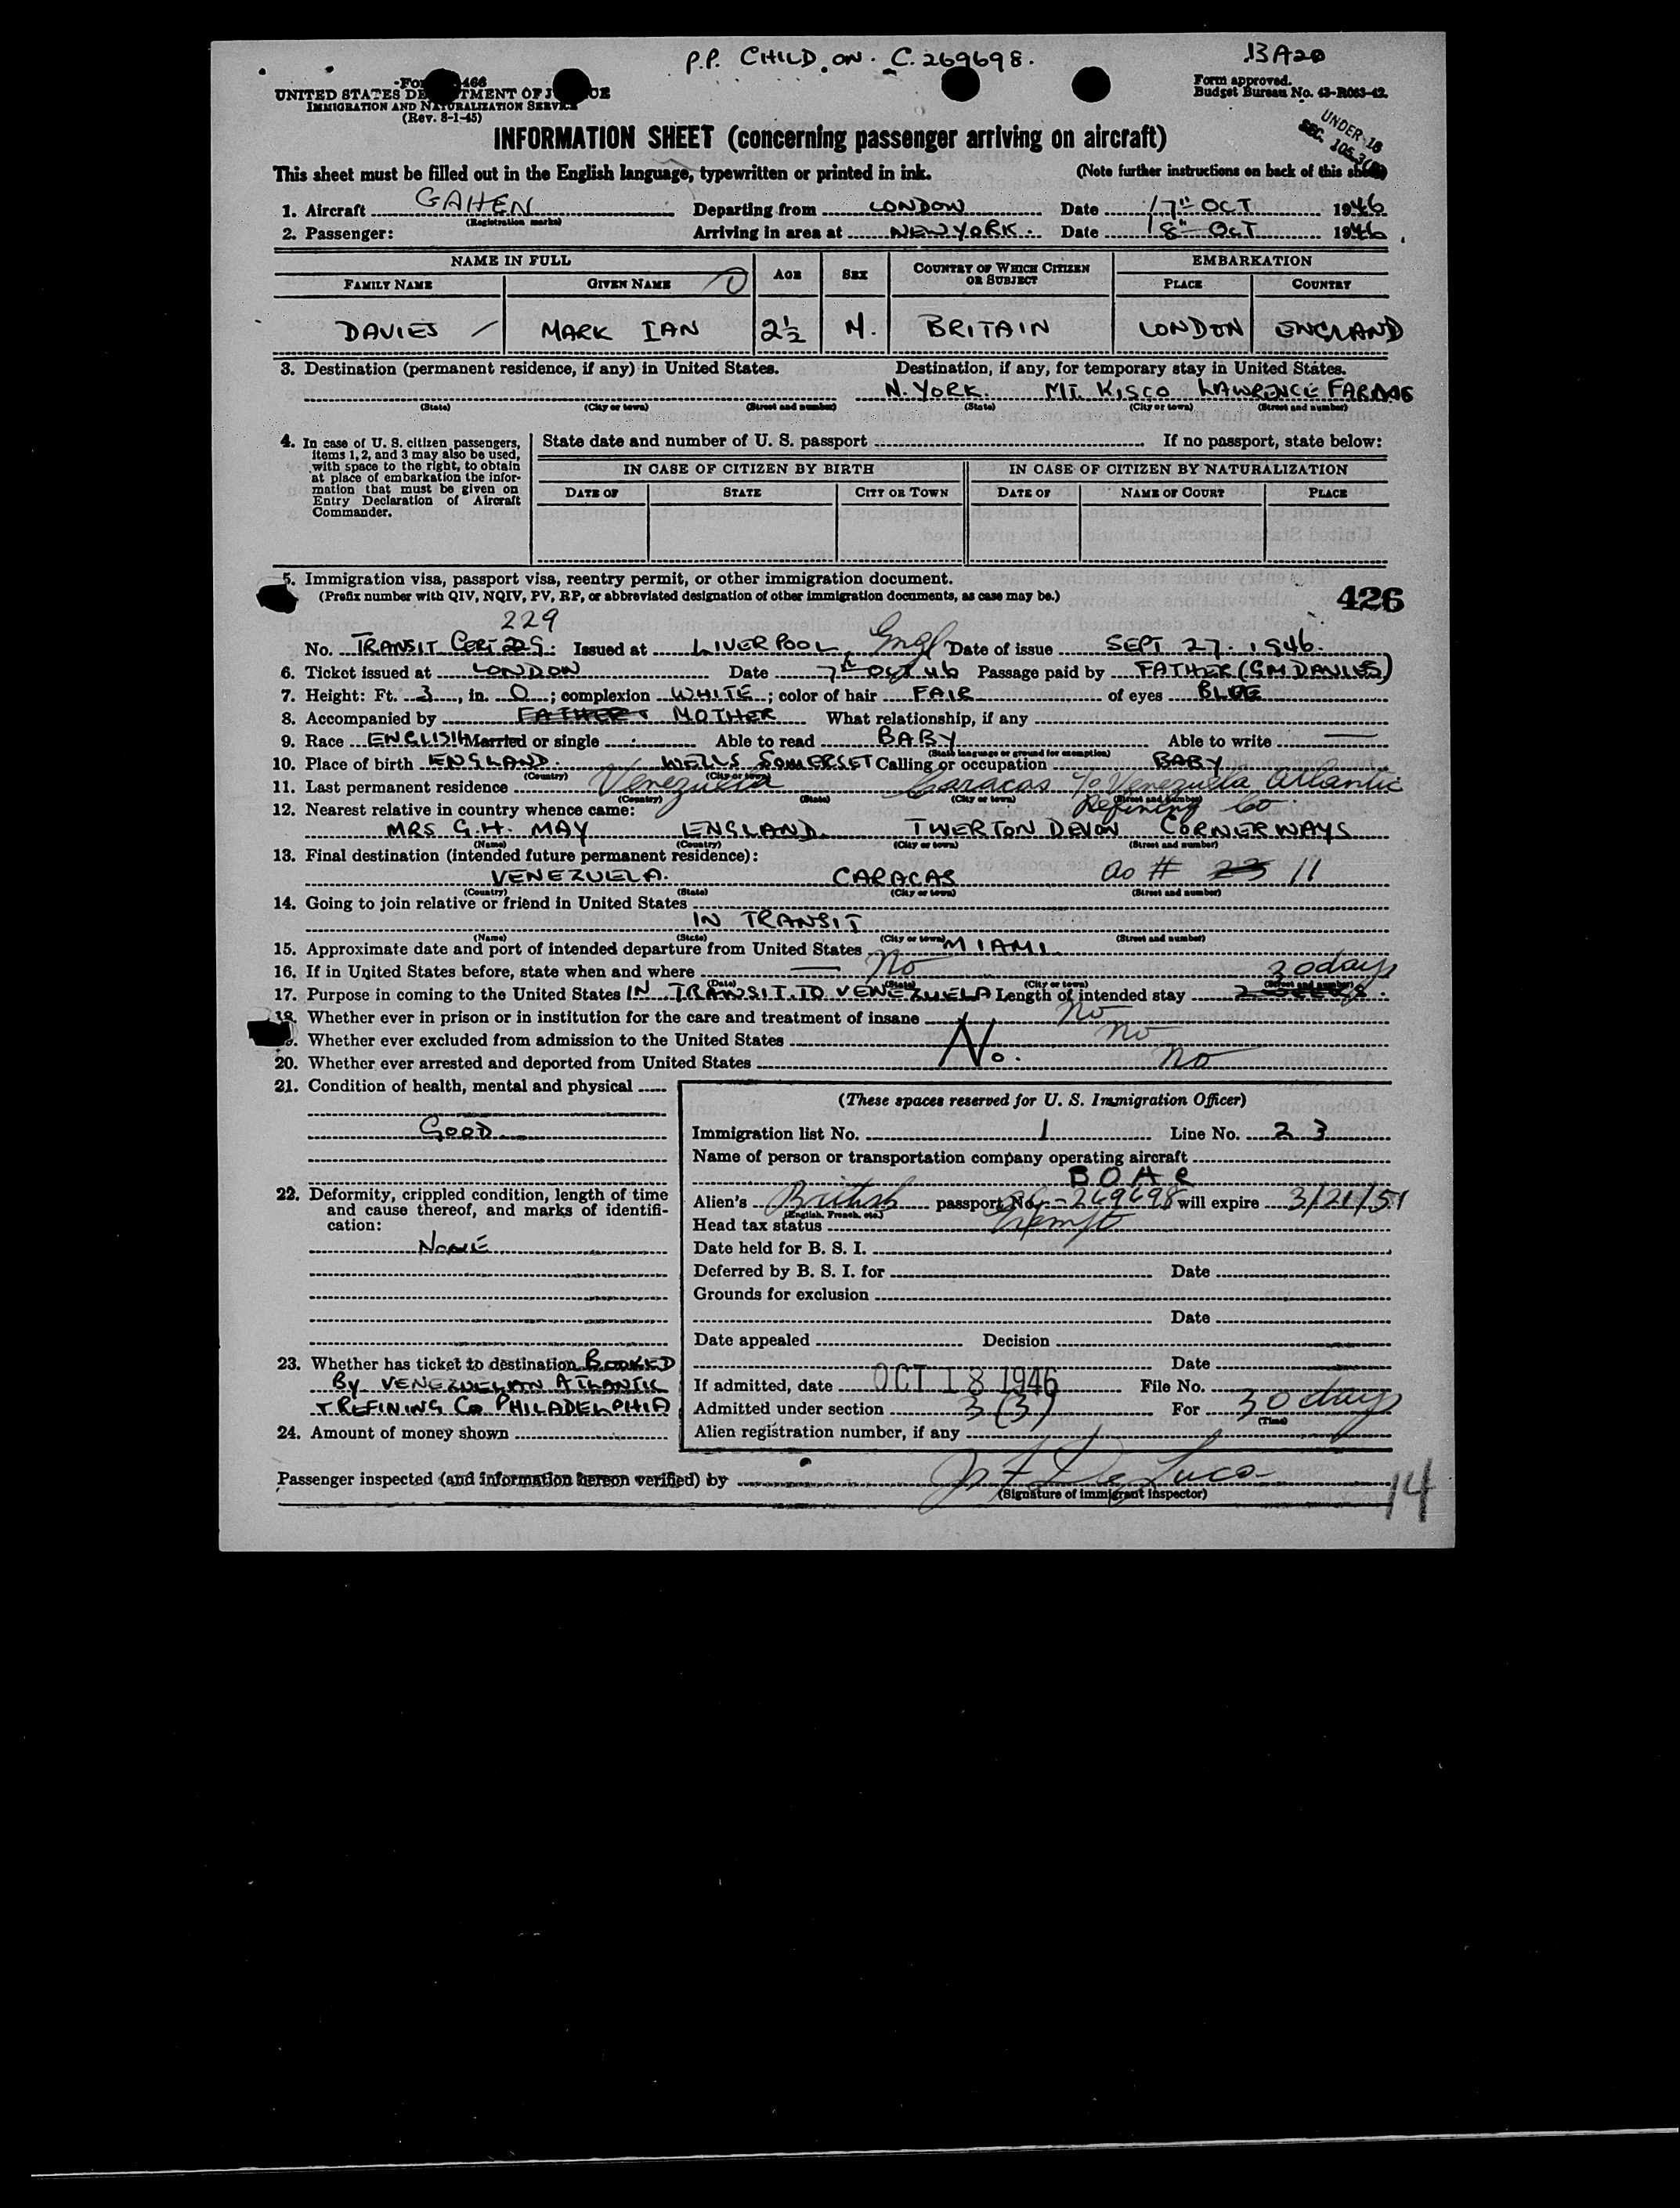 P.P. CHILD ON. C. 269698.
BA20
UNITED STATES DE TMENT OF J CE
IMMIGRATION AND NATURALIZATION SERVICE
(Rev. 8-1-45)
Form approved.
Budget Bureau No. 43-R063-42.
UNDER 16
SEC. 105.3
INFORMATION SHEET (concerning passenger arriving on aircraft)
This sheet must be filled out in the English language, typewritten or printed in ink. (Note further instructions on back of this sheet)
1. Aircraft GAHEN Departing from LONDON Date 17th OCT 1946
(Registration marks)
2. Passenger: Arriving in area at NEW YORK. Date 18th OCT 1946
NAME IN FULL AGE SEX COUNTRY OF WHICH CITIZEN OR SUBJECT EMBARKATION
FAMILY NAME GIVEN NAME PLACE COUNTRY
DAVIES MARK IAN 2½ M. BRITAIN LONDON ENGLAND
3. Destination (permanent residence, if any) in United States. Destination, if any, for temporary stay in United States.
N. YORK. MT. KISCO LAWRENCE FARMS
(State) (City or town) (Street and number) (State) (City or town) (Street and number)
4. In case of U. S. citizen passengers, items 1, 2, and 3 may also be used, with space to the right, to obtain at place of embarkation the information that must be given on Entry Declaration of Aircraft Commander.
State date and number of U. S. passport If no passport, state below:
IN CASE OF CITIZEN BY BIRTH IN CASE OF CITIZEN BY NATURALIZATION
DATE OF STATE CITY OR TOWN DATE OF NAME OF COURT PLACE
5. Immigration visa, passport visa, reentry permit, or other immigration document.
(Prefix number with QIV, NQIV, PV, RP, or abbreviated designation of other immigration documents, as case may be.)
426
229
No. TRANSIT CERT 229. Issued at LIVERPOOL, Engl Date of issue SEPT 27. 1946.
6. Ticket issued at LONDON Date 7th Oct 46 Passage paid by FATHER (GM DAVIES)
7. Height: Ft. 3, in. 0; complexion WHITE; color of hair FAIR of eyes BLUE
8. Accompanied by FATHER & MOTHER What relationship, if any
9. Race ENGLISH Married or single Able to read BABY Able to write —
(State language or ground for exemption)
10. Place of birth ENGLAND. WELLS SOMERSET Calling or occupation BABY
(Country) (City or town)
11. Last permanent residence Venezuela Caracas c/o Venezuela Atlantic
(Country) (State) (City or town) (Street and number)
Refining Co.
12. Nearest relative in country whence came:
MRS G.H. MAY ENGLAND. TIVERTON DEVON CORNERWAYS
(Name) (Country) (City or town) (Street and number)
13. Final destination (intended future permanent residence):
VENEZUELA. CARACAS as # 23 11
(Country) (State) (City or town) (Street and number)
14. Going to join relative or friend in United States
IN TRANSIT
(Name) (State) (City or town) (Street and number)
15. Approximate date and port of intended departure from United States MIAMI
16. If in United States before, state when and where — No
(Date) (State) (City or town) (Street and number)
30 days
17. Purpose in coming to the United States IN TRANSIT TO VENEZUELA Length of intended stay 2 WEEKS.
18. Whether ever in prison or in institution for the care and treatment of insane no
Whether ever excluded from admission to the United States no
No.
20. Whether ever arrested and deported from United States no
21. Condition of health, mental and physical
GOOD
22. Deformity, crippled condition, length of time and cause thereof, and marks of identification:
NONE
23. Whether has ticket to destination BOOKED
BY VENEZUELAN ATLANTIC
& REFINING Co PHILADELPHIA
24. Amount of money shown
(These spaces reserved for U. S. Immigration Officer)
Immigration list No. 1 Line No. 23
Name of person or transportation company operating aircraft
BOAC
Alien's British passport No. C-269698 will expire 3/21/51
(English, French, etc.)
Head tax status Exempt
Date held for B. S. I.
Deferred by B. S. I. for Date
Grounds for exclusion
Date
Date appealed Decision
Date
If admitted, date OCT 18 1946 File No.
Admitted under section 3(3) For 30 days
(Time)
Alien registration number, if any
Passenger inspected (and information hereon verified) by De Luca
(Signature of immigrant inspector)
14